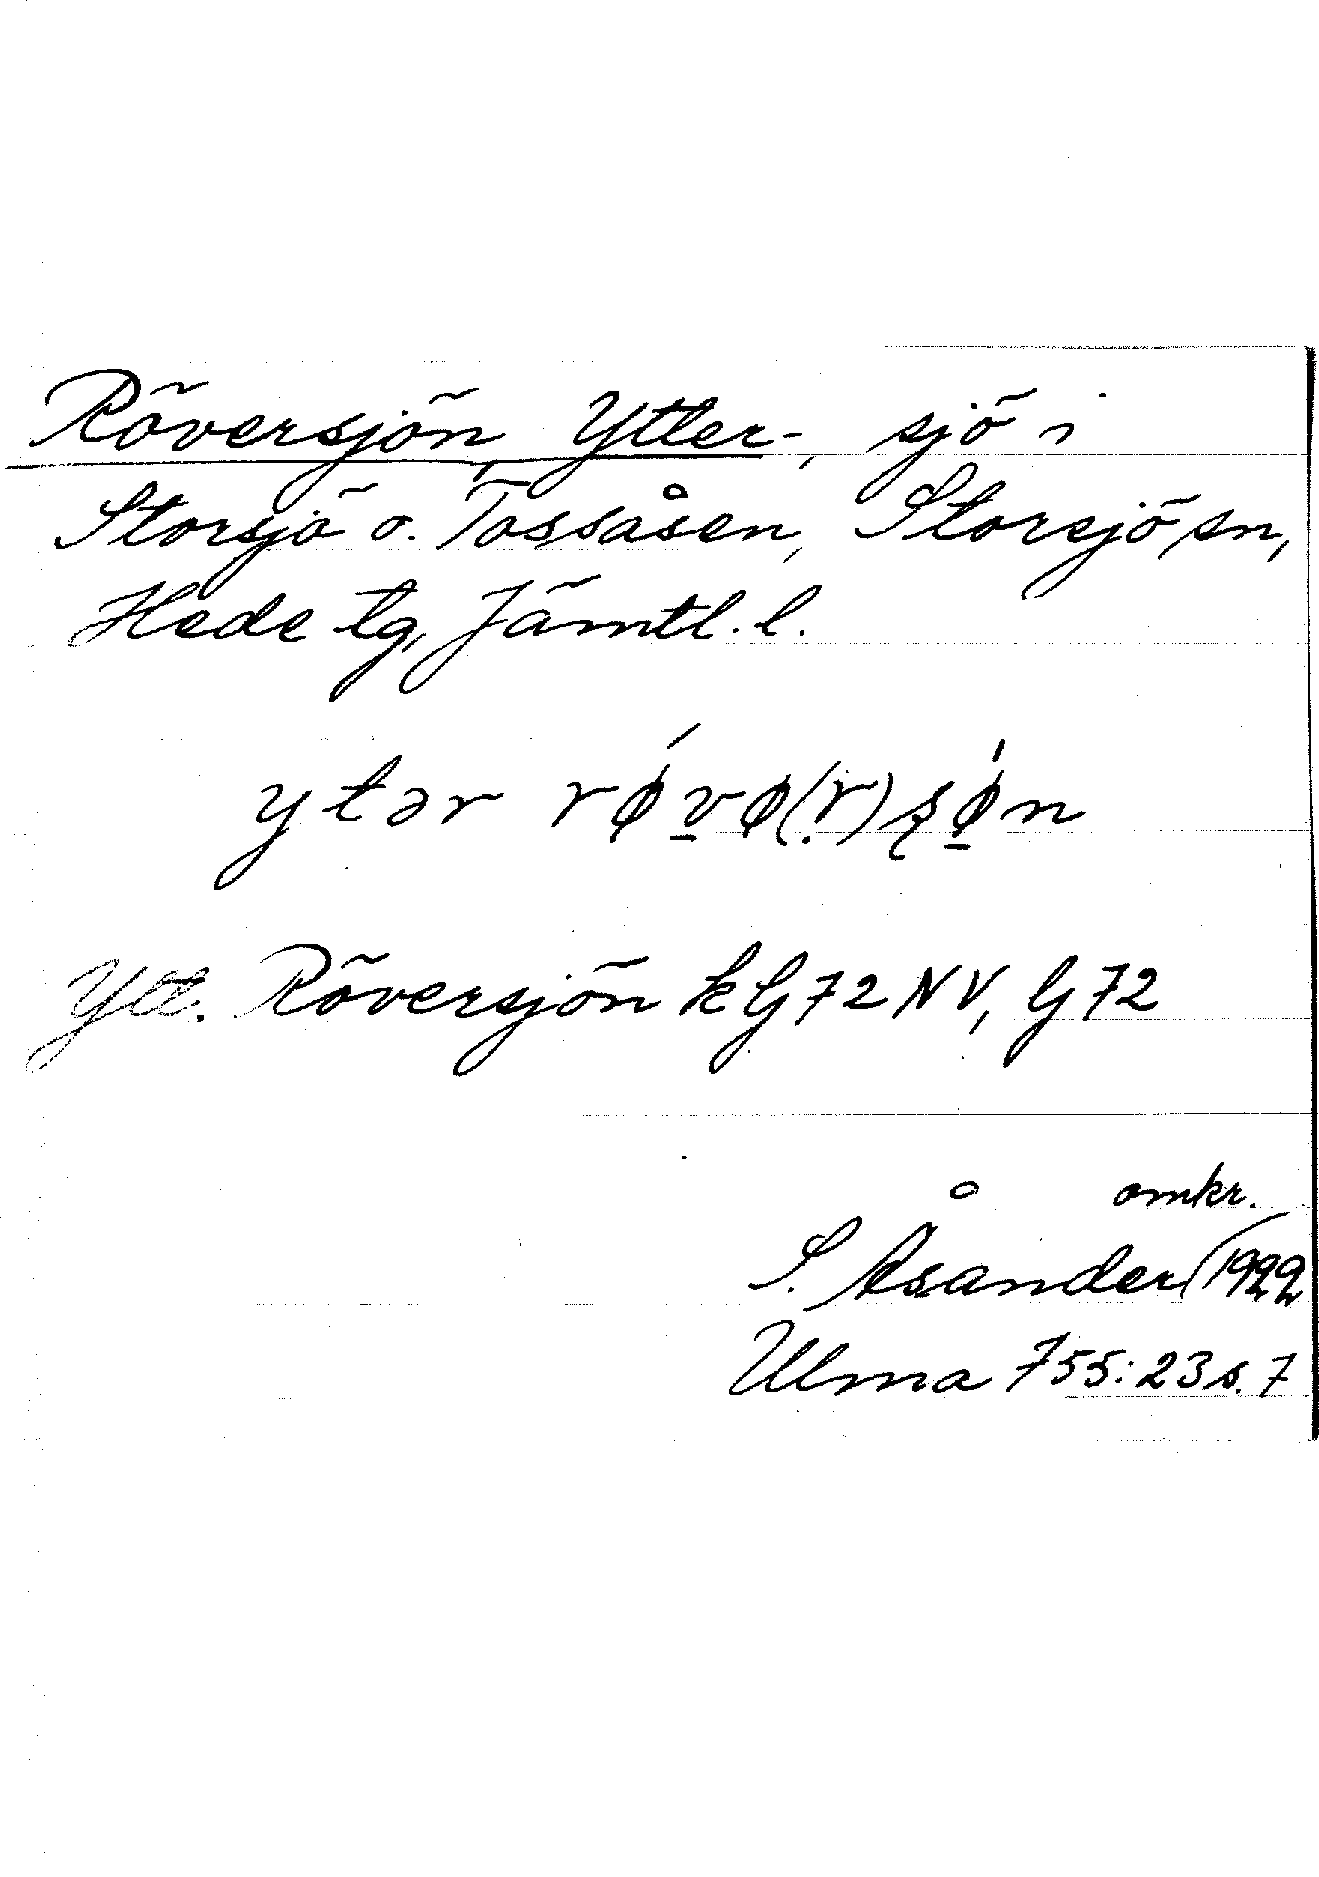 Röversjön, Ytter-, sjö i
Storsjö o. Tossåsen, Storsjö sn,
Hede tg, Jämtl. l.
ytər rǿv̲ø(ṛ)ʂǿ̲n
Ytt. Röversjön kG72NV, G72
omkr.
S. Åsander (1922
Ulma 755:23 s. 7